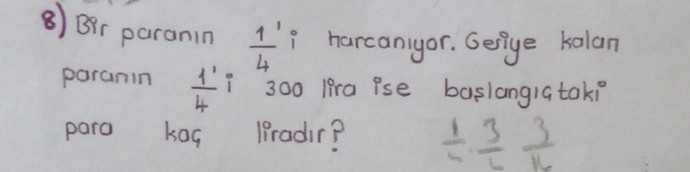 8) Bir paranın 1/4'i harcanıyor. Geriye kalan
paranın 1/4'i 300 lira ise başlangıçtaki
para kaç liradır? 1/4 . 3/4 3/16